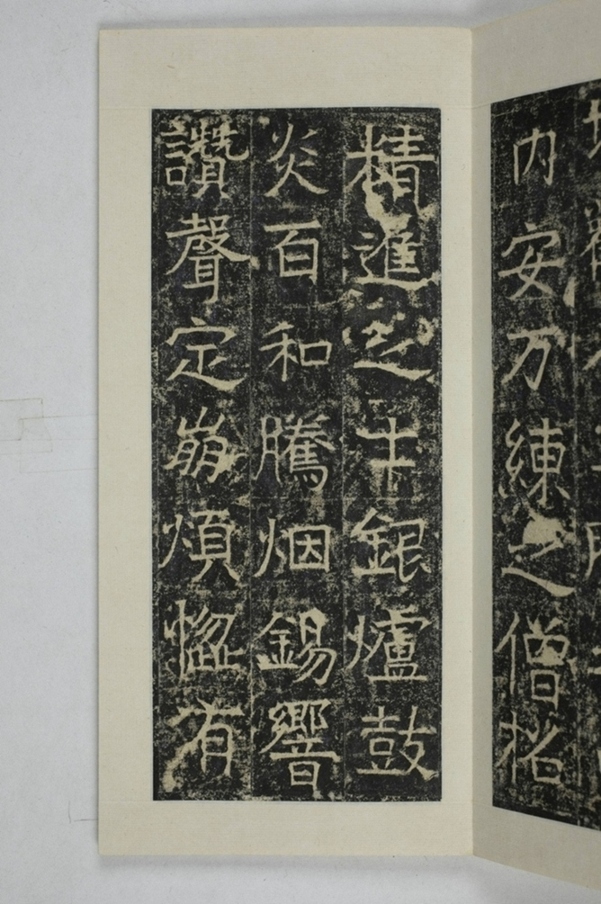 内安万練之僧招
精進之士銀爐鼓
炎百和騰烟錫響
讚聲定崩煩惱有